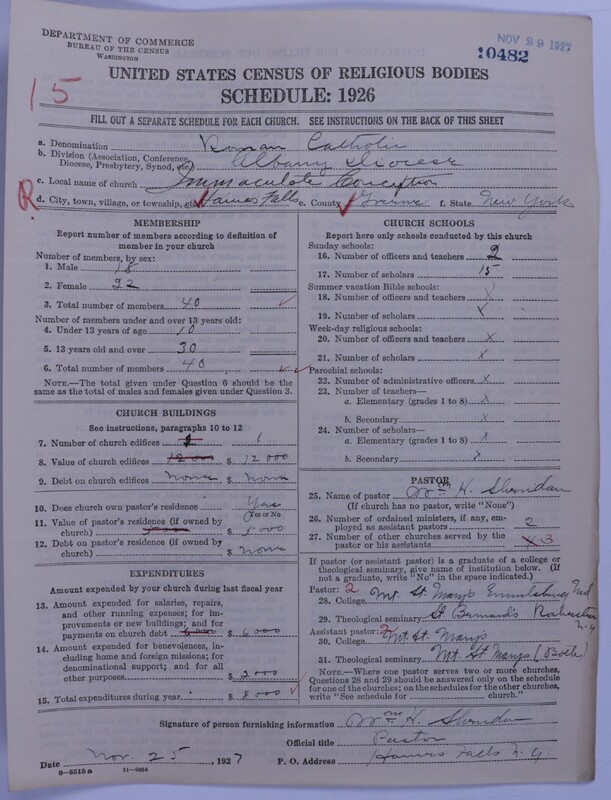 DEPARTMENT OF COMMERCE
BUREAU OF THE CENSUS
WASHINGTON
NOV 29 1927
10482
15
UNITED STATES CENSUS OF RELIGIOUS BODIES
SCHEDULE: 1926
FILL OUT A SEPARATE SCHEDULE FOR EACH CHURCH. SEE INSTRUCTIONS ON THE BACK OF THIS SHEET
a. Denomination Roman Catholic
b. Division (Association, Conference, Diocese, Presbytery, Synod, etc.) Albany Diocese
c. Local name of church Immaculate Conception
R
d. City, town, village, or township, etc. Haines Falls e. County Greene f. State New York
MEMBERSHIP
Report number of members according to definition of
member in your church
Number of members, by sex:
1. Male 18
2. Female 22
3. Total number of members 40
Number of members under and over 13 years old:
4. Under 13 years of age 10
5. 13 years old and over 30
6. Total number of members 40
NOTE.—The total given under Question 6 should be
same as the total of males and females given under Question 3.
CHURCH BUILDINGS
See instructions, paragraphs 10 to 12
7. Number of church edifices 1 1
8. Value of church edifices 12000 $ 12000
9. Debt on church edifices none $ none
10. Does church own pastor's residence? Yes
Yes or No
11. Value of pastor's residence (if owned by
church) $ 5000
12. Debt on pastor's residence (if owned by
church) $ none
EXPENDITURES
Amount expended by your church during last fiscal year
13. Amount expended for salaries, repairs,
and other running expenses; for im-
provements or new buildings; and for
payments on church debt 6000 $ 6000
14. Amount expended for benevolences, in-
cluding home and foreign missions; for
denominational support; and for all
other purposes $ 2000
15. Total expenditures during year $ 8000
CHURCH SCHOOLS
Report here only schools conducted by this church
Sunday schools:
16. Number of officers and teachers 2
17. Number of scholars 15
Summer vacation Bible schools:
18. Number of officers and teachers x
19. Number of scholars x
Week-day religious schools:
20. Number of officers and teachers x
21. Number of scholars x
Parochial schools:
22. Number of administrative officers x
23. Number of teachers—
a. Elementary (grades 1 to 8) x
b. Secondary x
24. Number of scholars—
a. Elementary (grades 1 to 8) x
b. Secondary x
PASTOR
25. Name of pastor Wm H. Sheridan
(If church has no pastor, write "None")
26. Number of ordained ministers, if any, em-
ployed as assistant pastors 2
27. Number of other churches served by the
pastor or his assistants x 3
If pastor (or assistant pastor) is a graduate of a college or
theological seminary, give name of institution below. (If
not a graduate, write "No" in the space indicated.)
Pastor: 2
28. College Mt. St. Marys Emmitsburg Md
29. Theological seminary St Bernards Rochester N.Y
Assistant pastor: 2
30. College Mt. St. Marys
31. Theological seminary Mt. St Marys (Both)
NOTE.—Where one pastor serves two or more churches,
Questions 28 and 29 should be answered only on the schedule
for one of the churches; on the schedules for the other churches,
write "See schedule for church."
Signature of person furnishing information Wm H. Sheridan
Official title Pastor
Date Nov. 25, 1927 P. O. Address Haines Falls N.Y.
8-5518a 11-9064